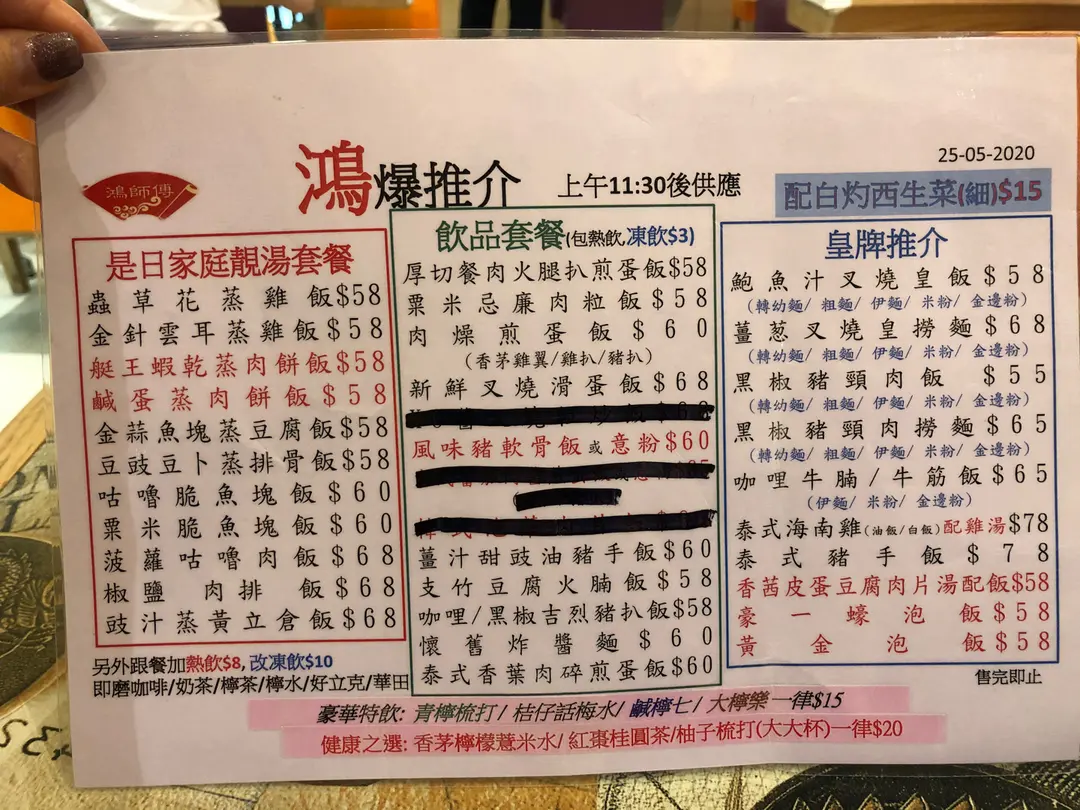 25-05-2020
鴻師傅
鴻爆推介
上午11:30後供應
配白灼西生菜(細)$15
是日家庭靚湯套餐
蟲草花蒸雞飯$58
金針雲耳蒸雞飯$58
艇王蝦乾蒸肉餅飯$58
鹹蛋蒸肉餅飯$58
金蒜魚塊蒸豆腐飯$58
豆豉豆卜蒸排骨飯$58
咕嚕脆魚塊飯$60
粟米脆魚塊飯$60
菠蘿咕嚕肉飯$68
椒鹽肉排飯$68
豉汁蒸黃立倉飯$68
另外跟餐加熱飲$8, 改凍飲$10
即磨咖啡/奶茶/檸茶/檸水/好立克/華田
飲品套餐(包熱飲,凍飲$3)
厚切餐肉火腿扒煎蛋飯$58
粟米忌廉肉粒飯$58
肉燥煎蛋飯$60
(香茅雞翼/雞扒/豬扒)
新鮮叉燒滑蛋飯$68
風味豬軟骨飯或意粉$60
薑汁甜豉油豬手飯$60
支竹豆腐火腩飯$58
咖哩/黑椒吉烈豬扒飯$58
懷舊炸醬麵$60
泰式香葉肉碎煎蛋飯$60
皇牌推介
鮑魚汁叉燒皇飯$58
(轉幼麵/ 粗麵/ 伊麵/ 米粉/ 金邊粉)
薑葱叉燒皇撈麵$68
(轉幼麵/ 粗麵/ 伊麵/ 米粉/ 金邊粉)
黑椒豬頸肉飯$55
(轉幼麵/ 粗麵/ 伊麵/ 米粉/ 金邊粉)
黑椒豬頸肉撈麵$65
(轉幼麵/ 粗麵/ 伊麵/ 米粉/ 金邊粉)
咖哩牛腩/牛筋飯$65
(伊麵/ 米粉/ 金邊粉)
泰式海南雞(油飯/白飯)配雞湯$78
泰式豬手飯$78
香茜皮蛋豆腐肉片湯配飯$58
豪一蠔泡飯$58
黃金泡飯$58
售完即止
豪華特飲: 青檸梳打/ 桔仔話梅水/ 鹹檸七/ 大檸樂 一律$15
健康之選: 香茅檸檬薏米水/ 紅棗桂圓茶/柚子梳打(大大杯)一律$20